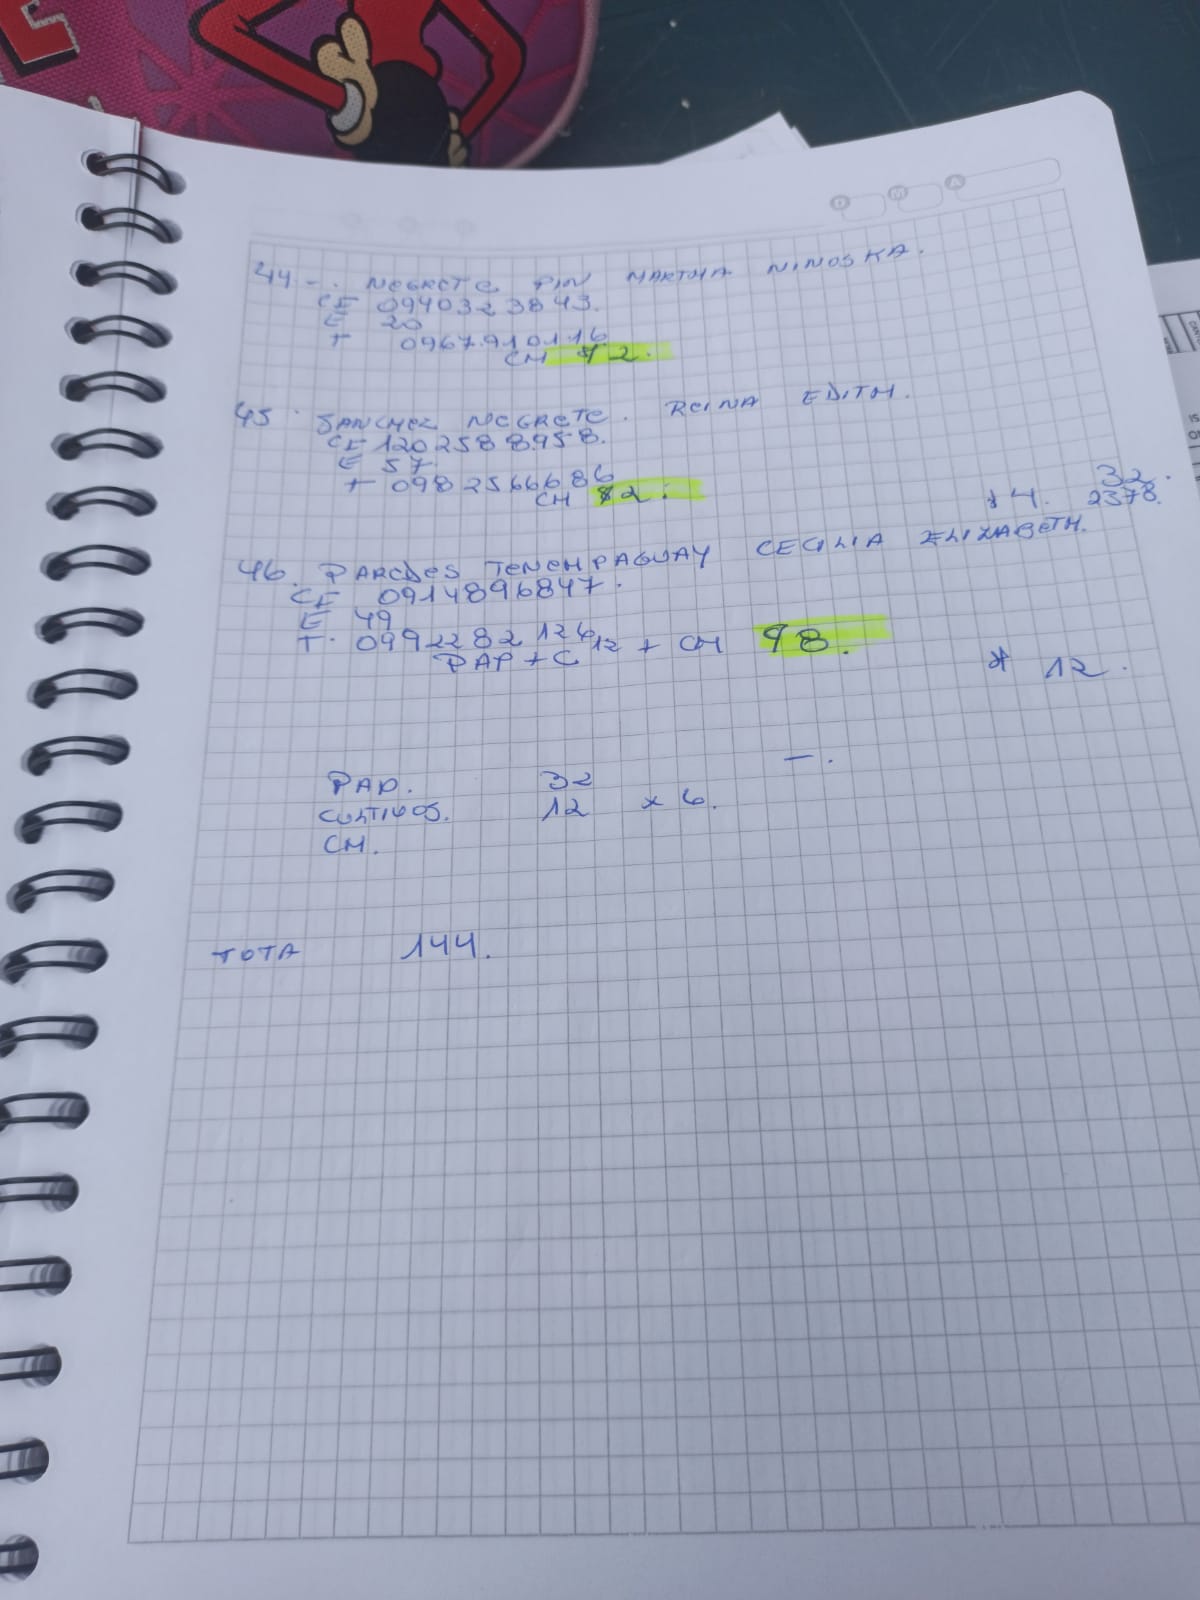 E
D M A
44-. NEGRETE PIN MARTHA NINOSKA.
CE 0940323843.
E 20
T 0967910116
CH $2.
45. SANCHEZ NEGRETE. REINA EDITH.
CE 1202588958.
E 57.
T 0982566686
CH $2.
32.
$4. 2378.
46. PAREDES TENEMPAGUAY CECILIA ELIZABETH.
CE 0914896847.
E 49
T. 0992282126
PAP + C 12 + CH 98.
* 12.
—.
PAP. 32
CULTIVOS. 12 x 6.
CH.
TOTA 144.